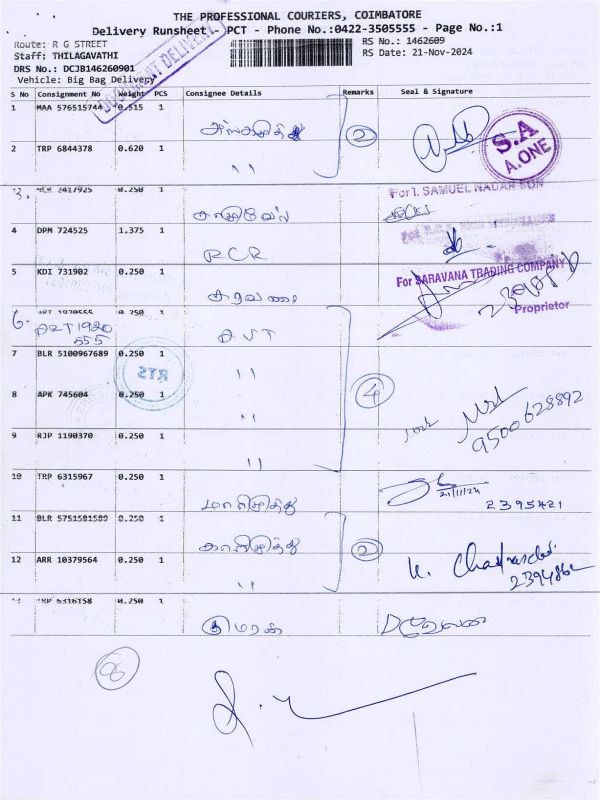 THE PROFESSIONAL COURIERS, COIMBATORE
Delivery Runsheet - PCT - Phone No.:0422-3505555 - Page No.:1
Route: R G STREET
RS No.: 1462609
Staff: THILAGAVATHI
RS Date: 21-Nov-2024
DRS No.: DCJB146260901
Vehicle: Big Bag Delivery
DOCUMENT DELIVERY
S No Consignment No Weight PCS Consignee Details Remarks Seal & Signature
1 MAA 576515744 0.515 1
2
S.A
A.ONE
2 TRP 6844378 0.620 1 ,,
3. 2417925 0.250 1
For I. SAMUEL NADAR SON
4 DPM 724525 1.375 1 RCR
5 KDI 731902 0.250 1 சரவணா
For SARAVANA TRADING COMPANY
Proprietor
6. ART 1920555 0.250 1
ART 1920
555
7 BLR 5100967689 0.250 1 ,,
RTS
8 APK 745604 0.250 1 ,,
4
9500628892
9 RJP 1190370 0.250 1 ,,
10 TRP 6315967 0.250 1 மாரிமுத்து
21/11/24
2395421
11 BLR 5751581589 0.250 1 காளிமுத்து
2
12 ARR 10379564 0.250 1 ,,
13 TRP 6316158 0.250 1 குமரன்